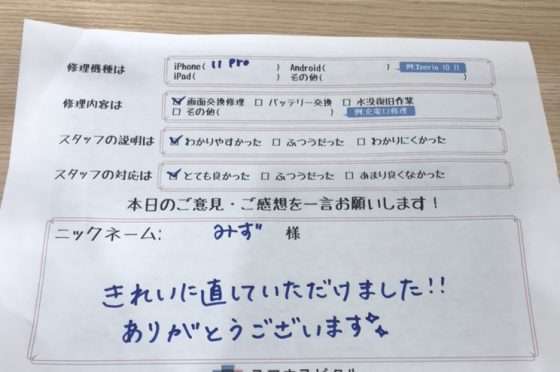 修理機種は iPhone( 11 Pro ) Android( ) 例:Xperia 10 II
iPad( ) その他( )
修理内容は ☑ 画面交換修理 □ バッテリー交換 □ 水没復旧作業
□ その他( ) 例:充電口修理
スタッフの説明は ☑ わかりやすかった □ ふつうだった □ わかりにくかった
スタッフの対応は ☑ とても良かった □ ふつうだった □ あまり良くなかった
本日のご意見・ご感想を一言お願いします!
ニックネーム: みず 様
きれいに直していただけました!!
ありがとうございます